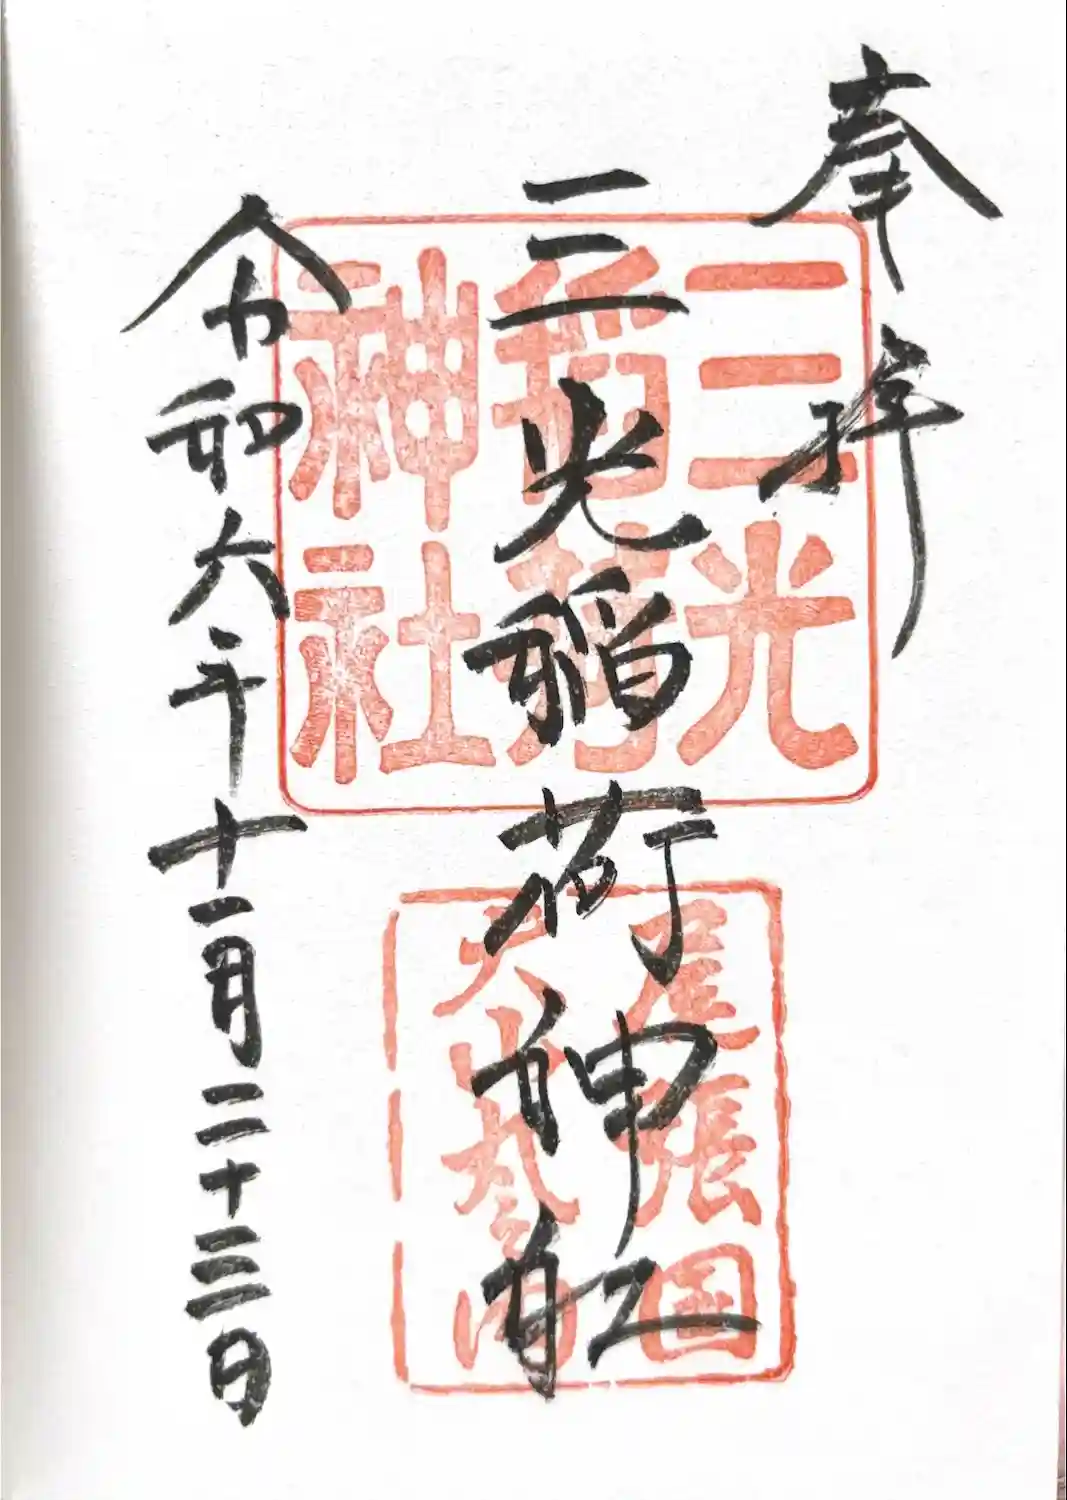 奉拝
三光稲荷神社
令和六年十一月二十三日
三光
稲荷
神社
尾張国
犬山丸の内